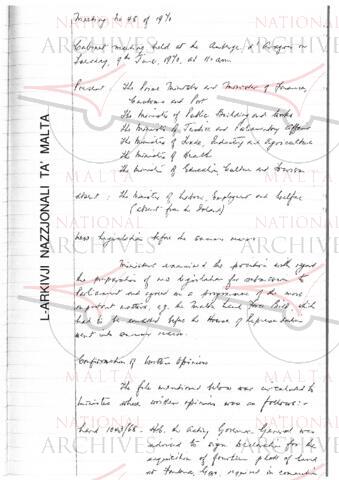 Meeting No 45 of 1970
Cabinet meeting held at the Auberge d'Aragon on
Tuesday, 9th June, 1970, at 11.0 am.
Present : The Prime Minister and Minister of Finance,
Customs and Port
The Minister of Public Building and Works
The Minister of Justice and Parliamentary Affairs
The Minister of Trade, Industry and Agriculture
The Minister of Health
The Minister of Education, Culture and Tourism
Absent : The Minister of Labour, Employment and Welfare
(absent from the Island)
New legislation before the summer recess
Ministers examined the position with regard
the preparation of new legislation for submission to
Parliament and agreed on a programme of the more
important matters, e.g. the Malta Land Force Bill, which
had to be enacted before the House of Representatives
went into summer recess.
Confirmation of Written Opinions
The file mentioned below was circulated to
Ministers whose written opinions was as follows:-
Land 1043/66 - H.E. the Acting Governor General was
advised to sign Declaration for the
acquisition of fourteen plots of land
at Fontana, Gozo, required in connection
L-ARKIVJI NAZZJONALI TA' MALTA
NATIONAL
ARCHIVES
MALTA